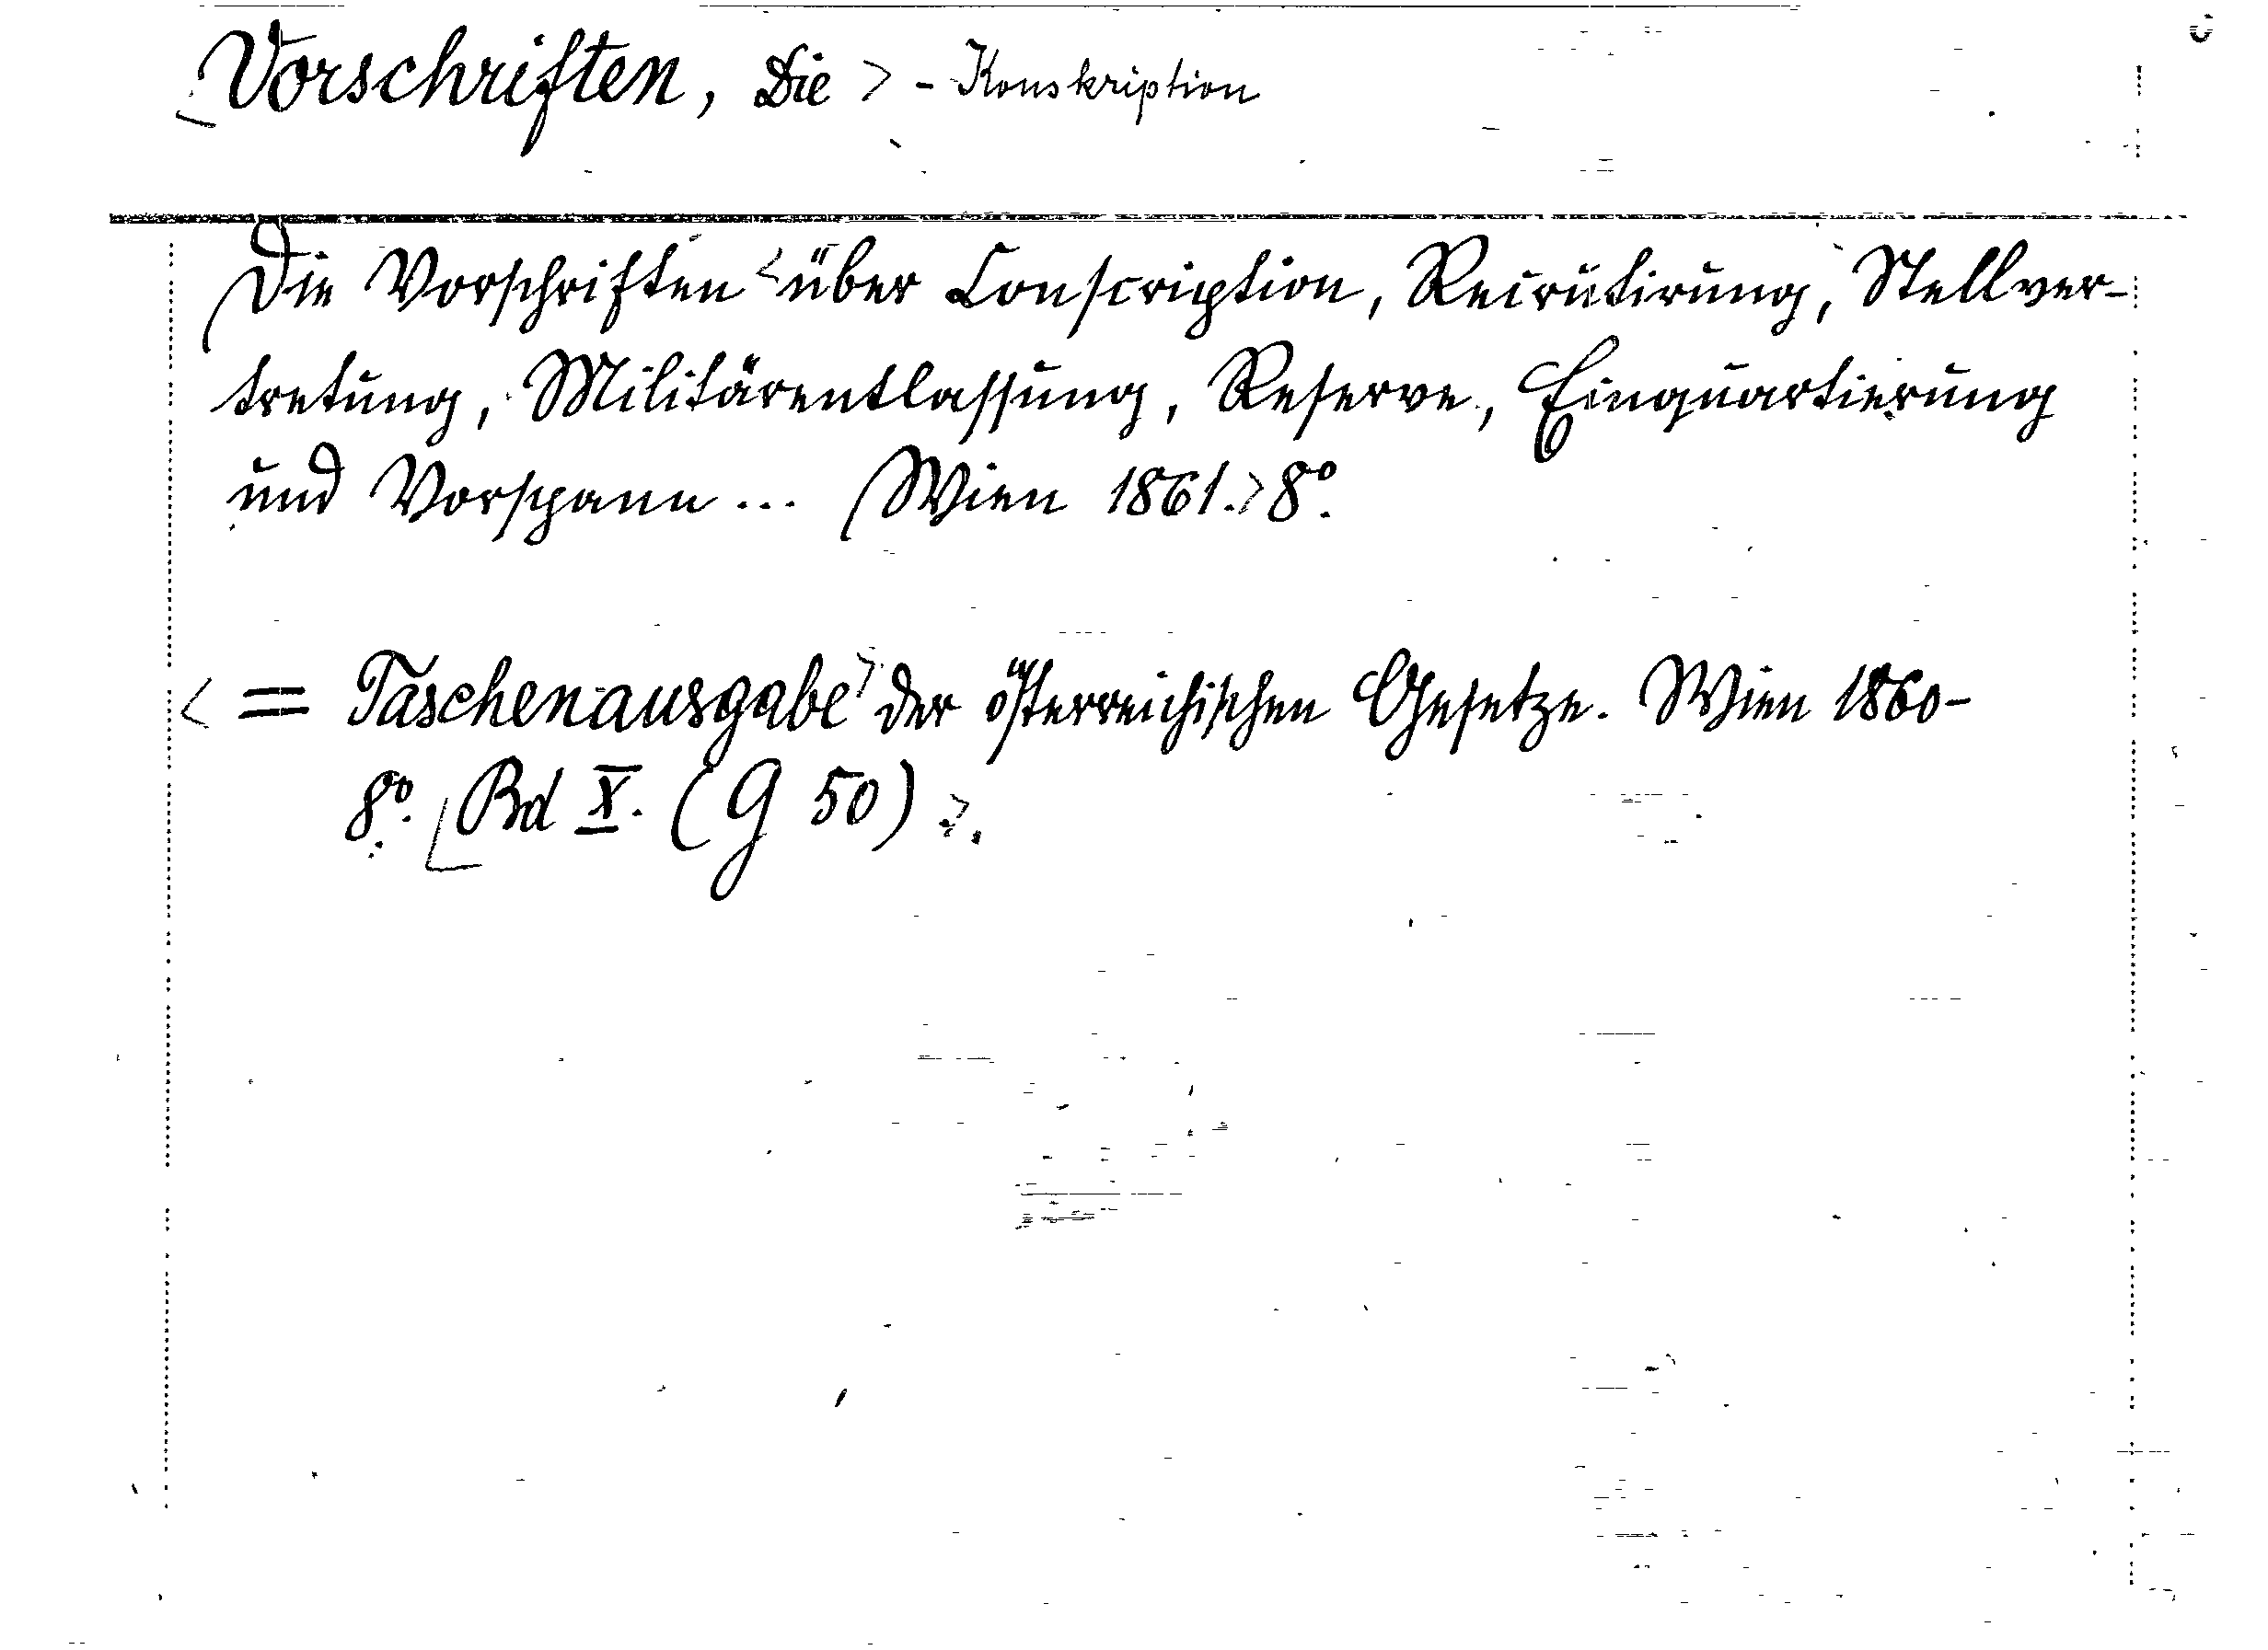 Vorschriften, Die > - Konskription
Die Vorschriften < über Conscription, Recrutirung, Stellver-
tretung, Militärentlassung, Reserve, Einquartierung
und Vorspann ... Wien 1861. > 8°.
< = Taschenausgabe > der österreichischen Gesetze. Wien 1860-
8°. [Bd X. (G 50) >.